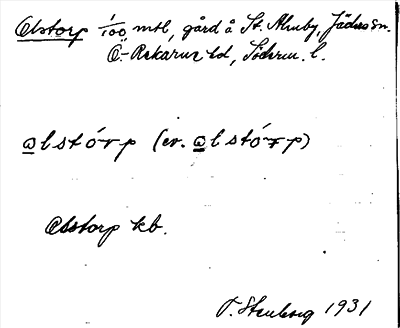 Alstorp 1/100 mtl, gård å St. Almby, Jäders sn.
Ö.-Rekarne hd, Söderm. l.
alstórp (ev. alstórp)
Alstorp kb.
P. Stenberg 1931